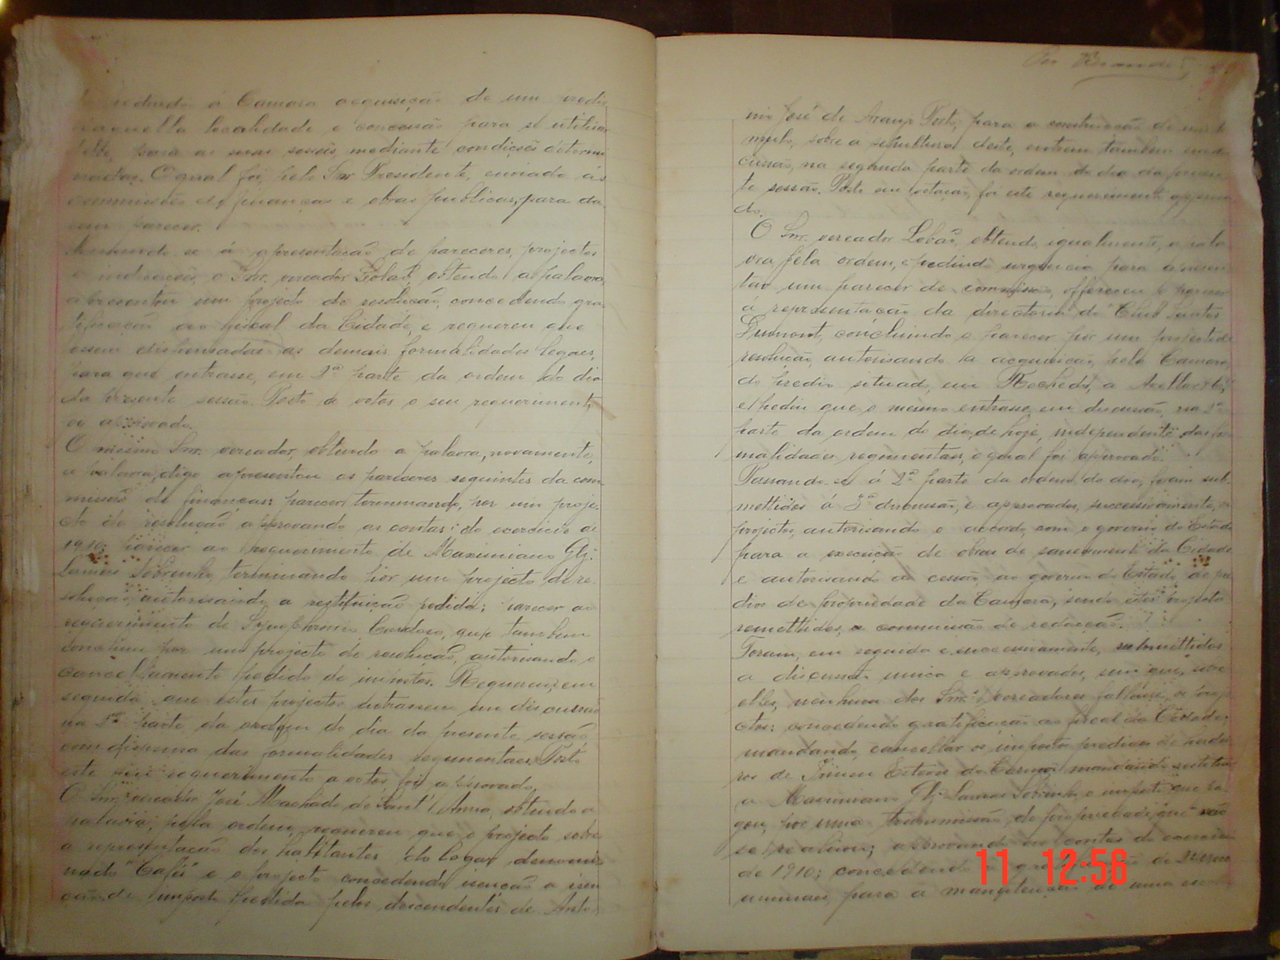 pedindo á Camara acquisição de um predio
naquella localidade e concessão para se utilisar
delle, para as suas sessões mediante condições determi
nadas. O qual foi, pelo Snr. Presidente, enviado ás
commissões de finanças e obras publicas, para da
rem parecer.
Passando-se á apresentação de pareceres, projectos
e indicações, o Snr. vereador obtendo a palavra,
apresentou um projecto de resolução, concedendo gra
tificação ao fiscal da Cidade, e requereu que
fossem dispensadas as demais formalidades legaes,
para que entrasse, em 2ª parte da ordem do dia
da presente sessão. Posto a votos o seu requerimento,
foi approvado.
O mesmo Snr. vereador, obtendo a palavra, novamente,
a palavra, digo apresentou os pareceres seguintes da com
missão de finanças: parecer terminando, por um proje
cto de resolução approvando as contas do exercicio de
1910; parecer ao requerimento de Maximiano
Lemos Sobrinho, terminando por um projecto de re
solução, autorisando a restituição pedida; parecer ao
requerimento de Cardoso, que tambem
conclue por um projecto de resolução, autorisando o
cancellamento pedido de impostos. Requereu, em
seguida que estes projectos entrassem em discussão
na 2ª parte da ordem do dia da presente sessão
com dispensa das formalidades regimentaes. Posto
este requerimento a votos, foi approvado.
O Snr. vereador José Machado de Sant'Anna, obtendo a
palavra, pela ordem, requereu que o projecto sobre
a representação dos habitantes do logar denomi
nado "Cafés" e o projecto concedendo isenção a isen
ção de imposto pedida pelos descendentes de Anto-
nio José de Araujo Porto, para a construcção de um tu
mulo, sobre a sepultura deste, entrem tambem em dis
cussão, na segunda parte da ordem do dia da presen
te sessão. Posto em votação, foi este requerimento approva
do.
O Snr. vereador Lobão, obtendo, igualmente, a pala
vra pela ordem, e pedindo urgencia para apresen
tar um parecer de commissão, offereceu o
á representação da directoria do "Club Santos
Dumont", concluindo o parecer por um projecto de
resolução, autorisando a acquisição, pela Camara,
do predio situado, em
e pediu que o mesmo entrasse em discussão, na 2ª
parte da ordem do dia, de hoje, independente das for
malidades regimentaes, o qual foi approvado.
Passando-se á 2ª parte da ordem do dia, foram sub
mettidos á 2ª discussão, e approvados, successivamente, os
projectos, autorisando o accordo, com o governo do Estado
para a execução de obras de saneamento da Cidade
e autorisando a cessão, ao governo do Estado, de pre
dios de propriedade da Camara, sendo estes projectos
remettidos, a commissão de redacção.
Foram, em seguida e successivamente, submettidos
a discussão unica e approvados, sem que, sobre
elles, nenhum dos Snrs. vereadores fallasse, os proje
ctos: concedendo gratificação ao fiscal da Cidade;
mandando cancellar os impostos prediaes
de Esteves do Carmo; mandando restituir
a Maximiano Lemos Sobrinho, o imposto que pa
gou, por uma transmissão de propriedade, que não
se realisou; approvando as contas do exercicio
de 1910; concedendo a
annuaes, para a manutenção de uma escola
11 12:56